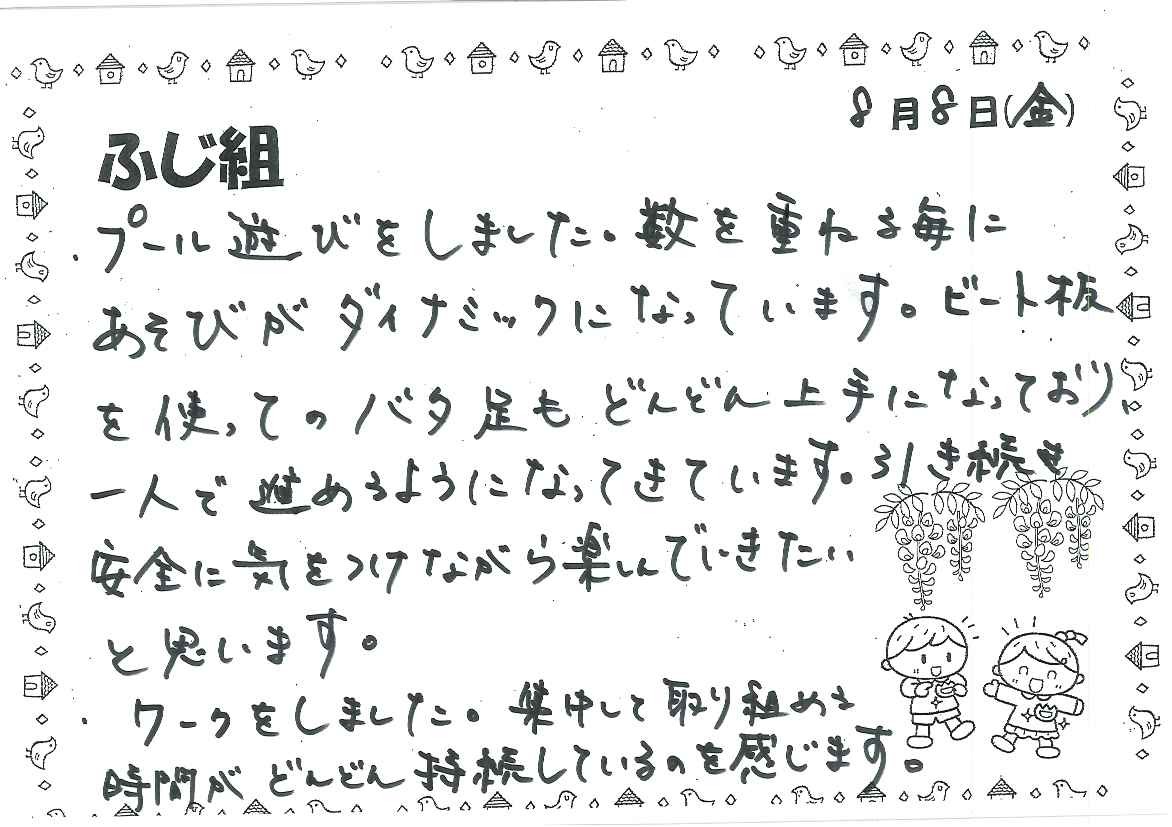 8月8日(金)
ふじ組
・プール遊びをしました。数を重ねる毎に
あそびがダイナミックになっています。ビート板
を使ってのバタ足もどんどん上手になっており、
一人で進めるようになってきています。引き続き
安全に気をつけながら楽しんでいきたい
と思います。
・ワークをしました。集中して取り組める
時間がどんどん持続しているのを感じます。